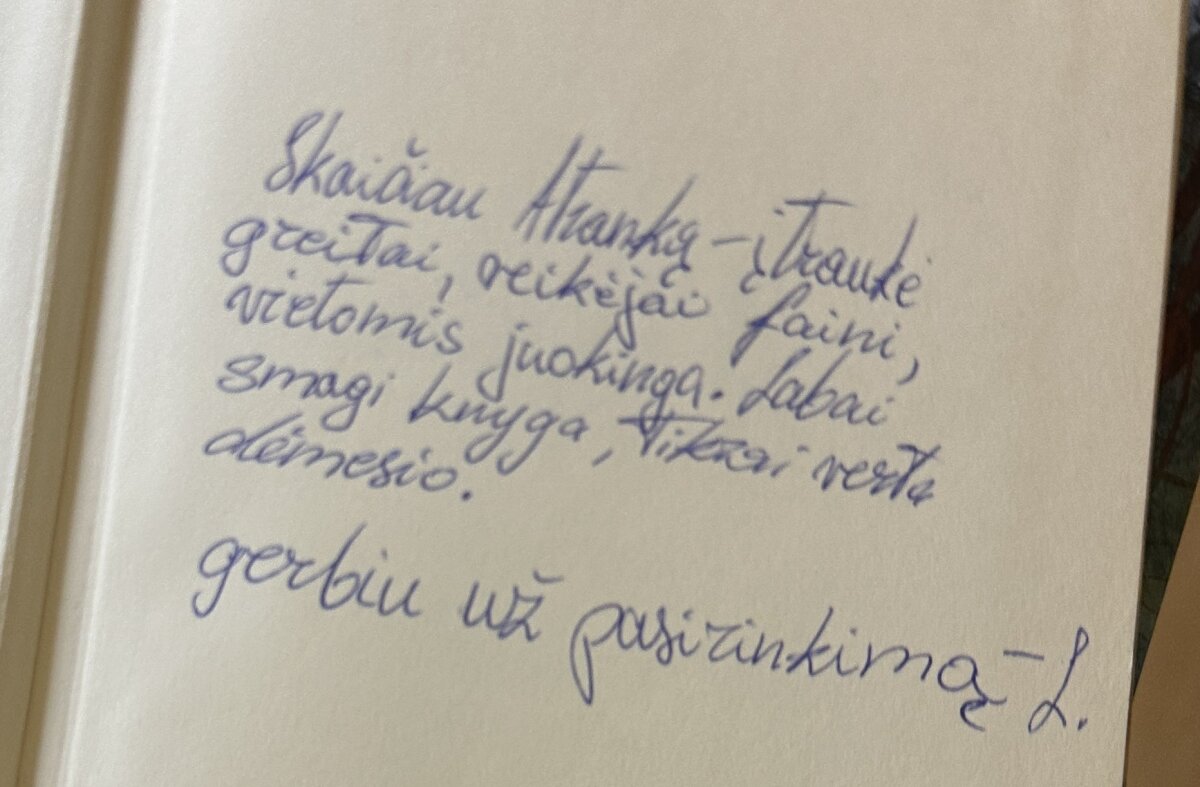 Skaičiau Atranką – įtraukė
greitai, veikėjai faini,
vietomis juokinga. Labai
smagi knyga, tikrai verta
dėmesio.
gerbiu už pasirinkimą – L.